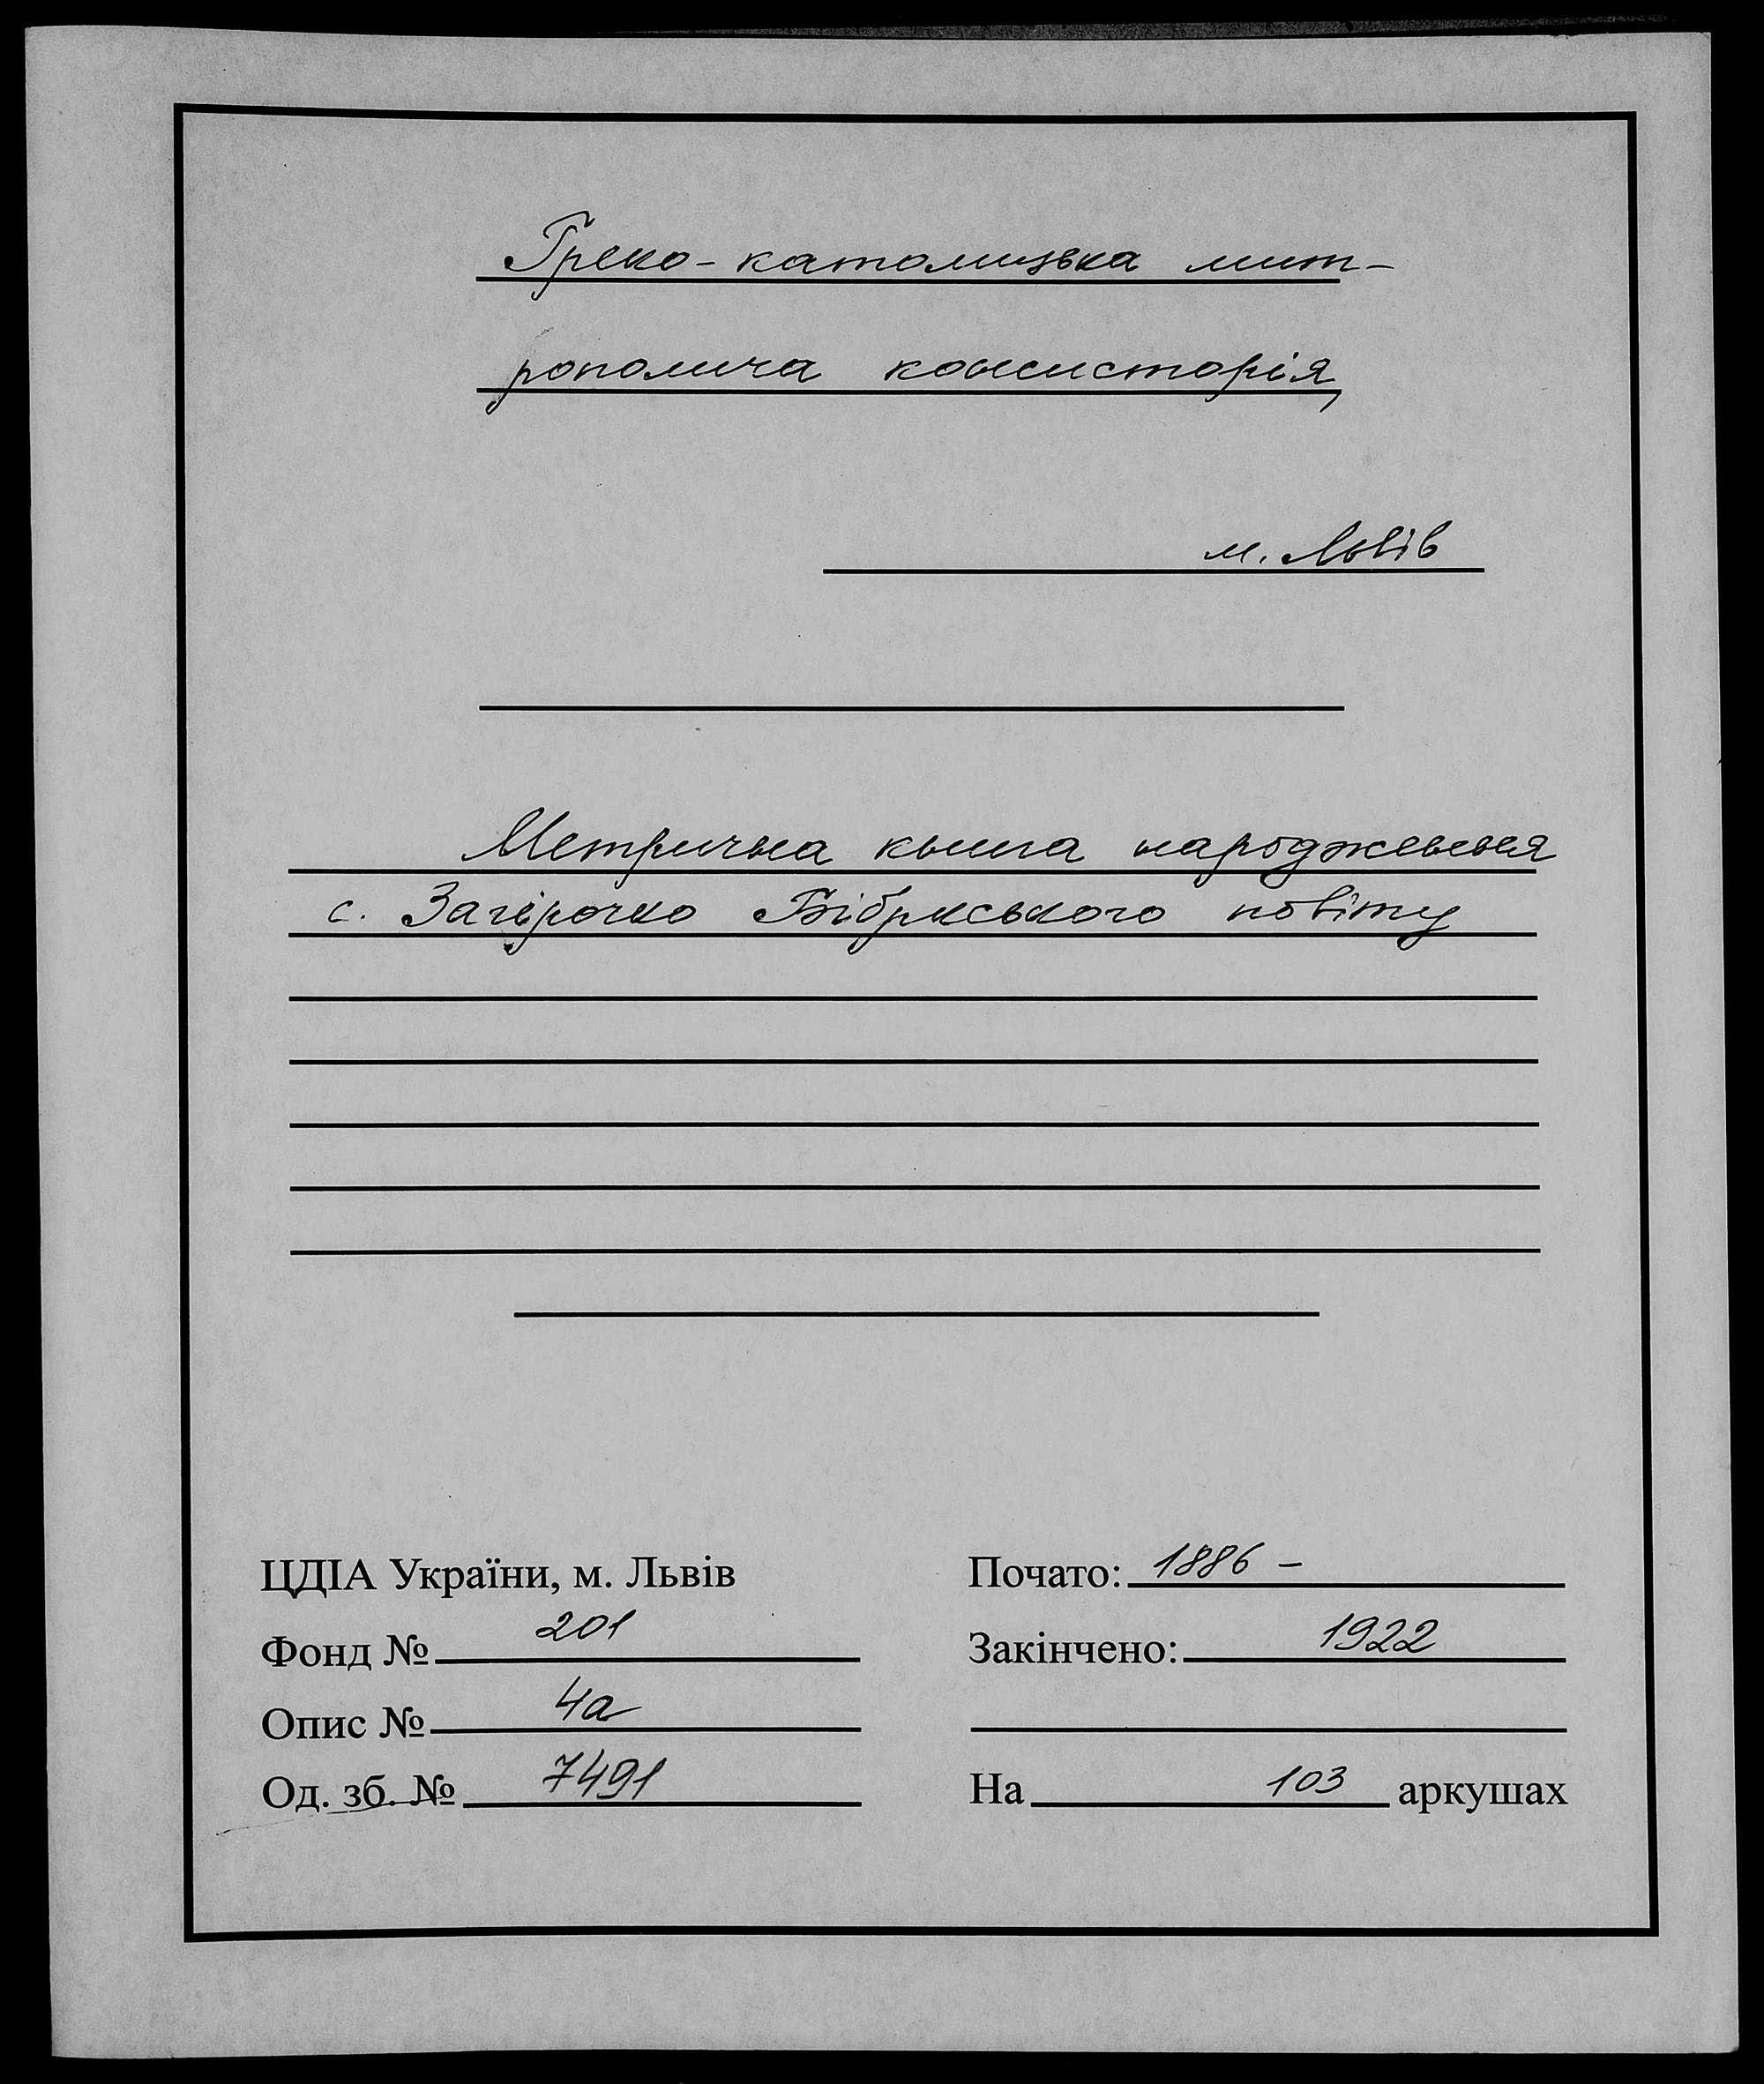 Греко-католицька мит-
рополича консисторія,
м. Львів
Метрична книга народження
с. Загірочко Бібрського повіту
ЦДІА України, м. Львів
Фонд № 201
Опис № 4а
Од. зб. № 7491
Почато: 1886 –
Закінчено: 1922
На 103 аркушах